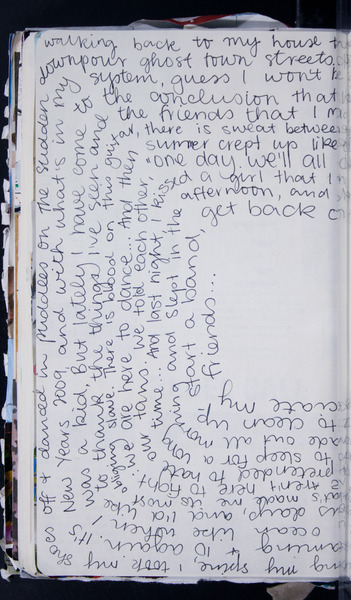 walking back to my house
downpour ghost town streets.
system, guess I won't be
the conclusion that
the friends that I
there is sweat between
summer crept up like
"one day we'll all
a girl that I
afternoon, and
get back
shoes off + danced in puddles on the sudden
It's New Years 2009 and with what is in my
I was a kid. But lately I have come to
to thank the things I've seen and
singing slave. There is blood on this guitar,
we are here to dance... And then
tans. We told each other,
our time... And last night, I kissed
long morning and slept in the
start a band,
friends...
my
to clean up
made out all
to sleep for a
pretended to hate
aren't here to fight
made me its most like
okay, and I lia
ocean like when
10 again.
my spine, I took my